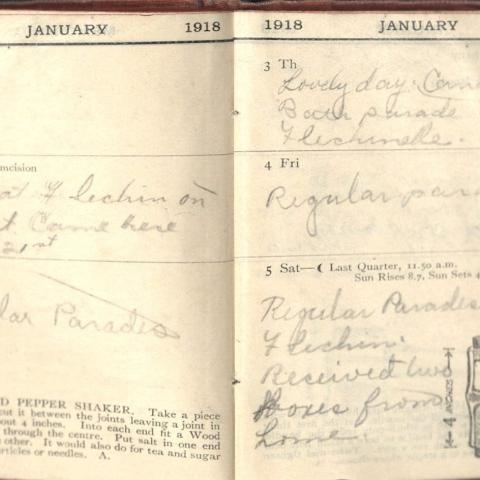 JANUARY 1918
mcision
at Flechin on
t. Came here
21st
lar Parades
D PEPPER SHAKER. Take a piece
cut it between the joints leaving a joint in
bout 4 inches. Into each end fit a Wood
through the centre. Put salt in one end
other. It would also do for tea and sugar
articles or needles. A.
1918 JANUARY
3 Th
Lovely day.
Bath parade
Flechinelle.
4 Fri
Regular
5 Sat—☾ Last Quarter, 11.50 a.m.
Sun Rises 8.7, Sun Sets 4
Regular Parades
Flechin.
Received two
Boxes from
home.
4 INCHES